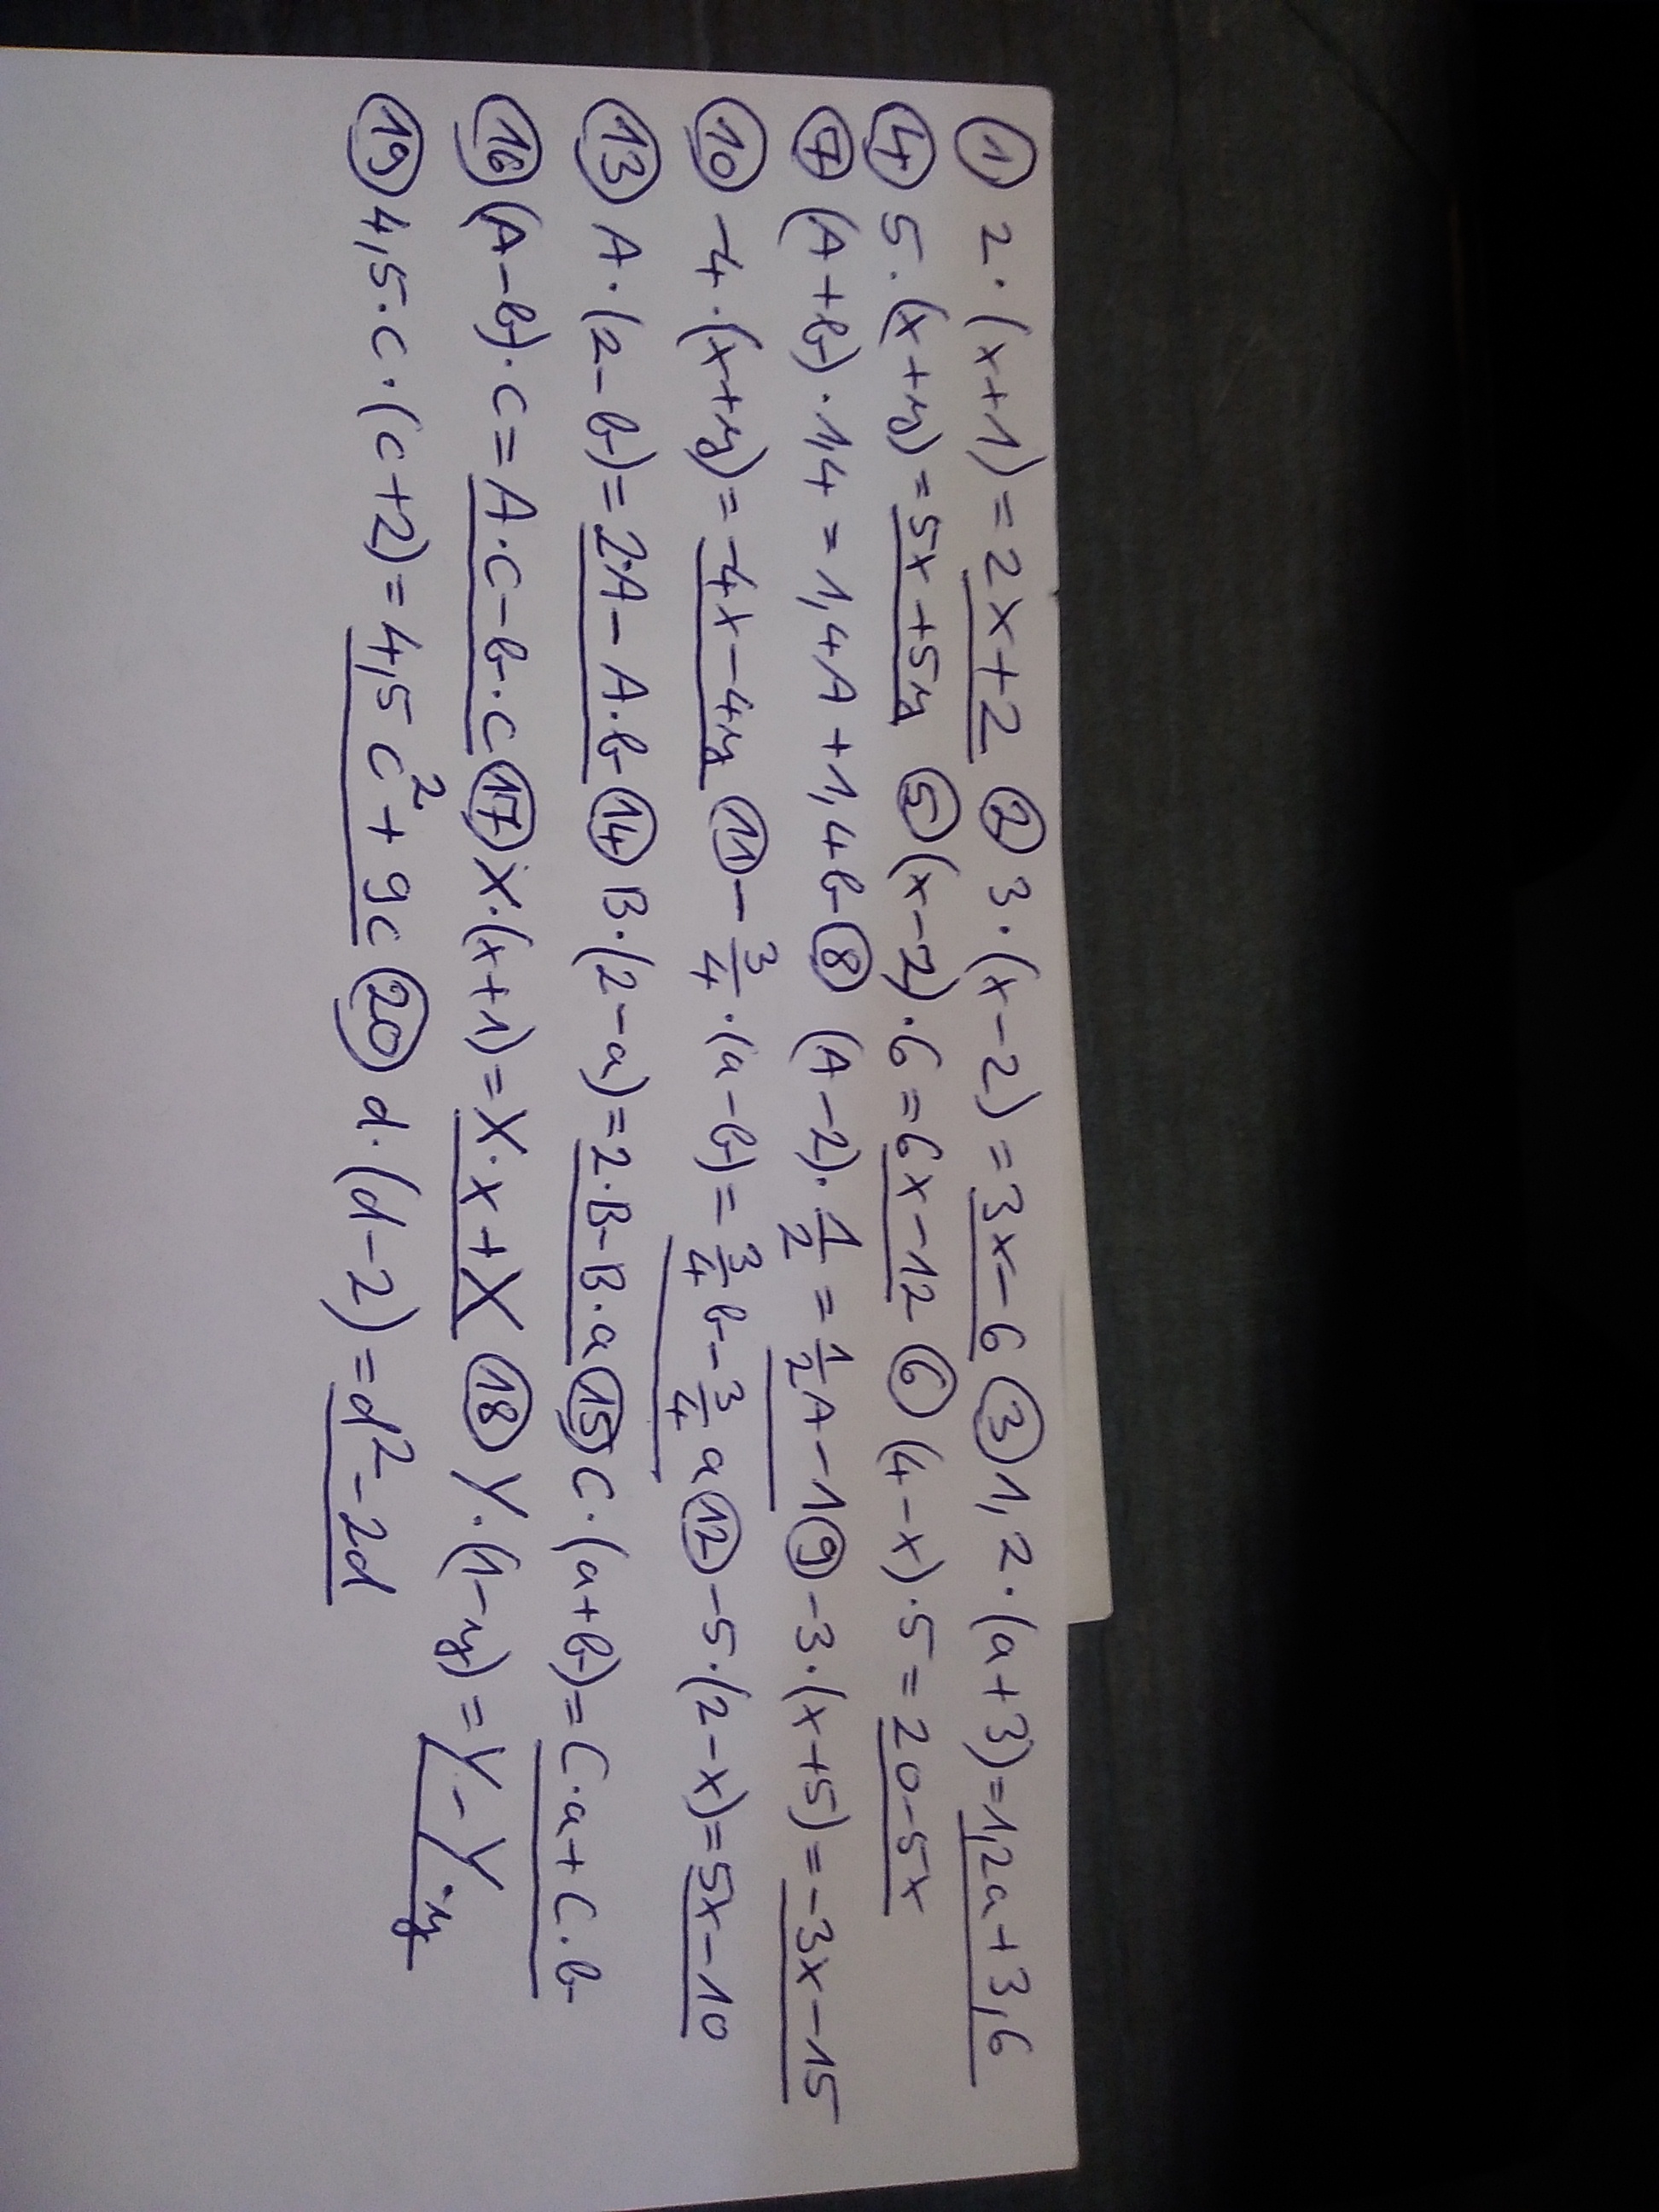 ① 2·(x+1)=2x+2 ② 3·(x-2)=3x-6 ③ 1,2·(a+3)=1,2a+3,6
④ 5·(x+y)=5x+5y ⑤ (x-2)·6=6x-12 ⑥ (4-x)·5=20-5x
⑦ (A+b)·1,4=1,4A+1,4b ⑧ (A-2)·1/2=1/2A-1 ⑨ -3·(x+5)=-3x-15
⑩ -4·(x+y)=-4x-4y ⑪ -3/4·(a-b)=3/4b-3/4a ⑫ -5·(2-x)=5x-10
⑬ A·(2-b)=2·A-A·b ⑭ B·(2-a)=2·B-B·a ⑮ C·(a+b)=C·a+C·b
⑯ (A-b)·C=A·C-b·C ⑰ X·(x+1)=X·x+X ⑱ Y·(1-y)=Y-Y·y
⑲ 4,5·c·(c+2)=4,5c²+9c ⑳ d·(d-2)=d²-2d